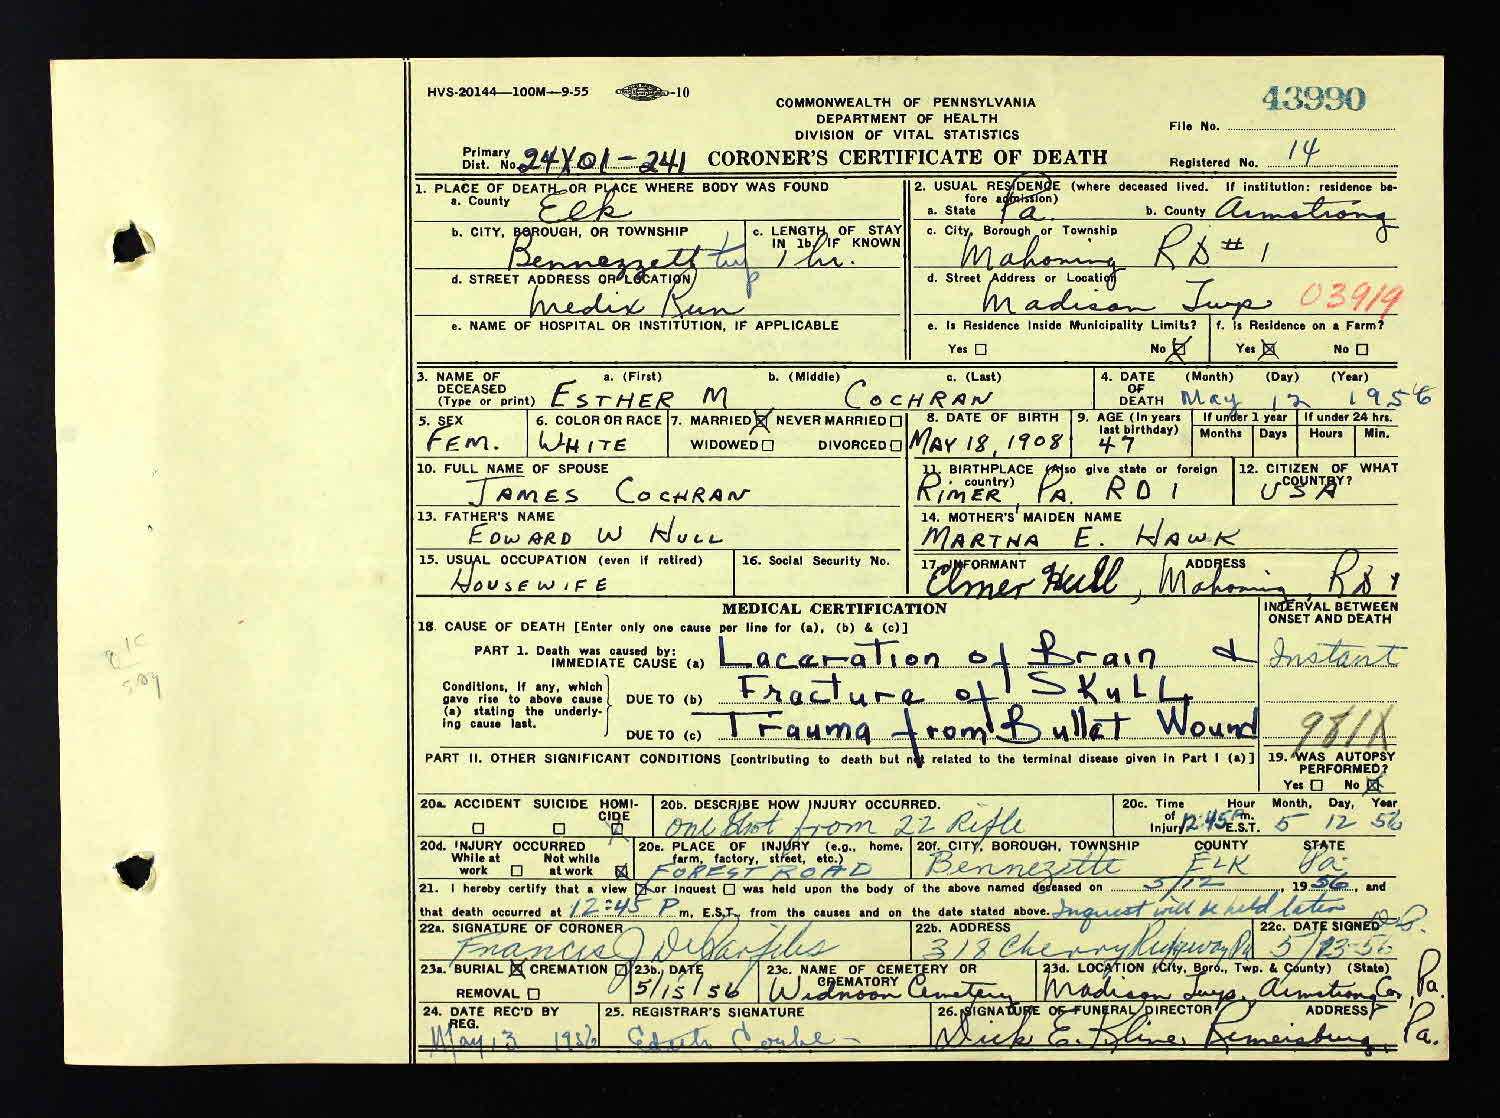 HVS-20144—100M—9-55 -10
43990
COMMONWEALTH OF PENNSYLVANIA
DEPARTMENT OF HEALTH
DIVISION OF VITAL STATISTICS
File No.
Primary Dist. No. 24X01-241
CORONER'S CERTIFICATE OF DEATH
Registered No. 14
1. PLACE OF DEATH OR PLACE WHERE BODY WAS FOUND
a. County Elk
2. USUAL RESIDENCE (where deceased lived. If institution: residence before admission)
a. State Pa. b. County Armstrong
b. CITY, BOROUGH, OR TOWNSHIP Bennezzett twp
c. LENGTH OF STAY IN 1b, IF KNOWN 1 hr.
c. City, Borough or Township Mahoning RD #1
d. STREET ADDRESS OR LOCATION Medix Run
d. Street Address or Location Madison Twp 03919
e. NAME OF HOSPITAL OR INSTITUTION, IF APPLICABLE
e. Is Residence Inside Municipality Limits? Yes No X
f. Is Residence on a Farm? Yes X No
3. NAME OF DECEASED (Type or print) a. (First) b. (Middle) c. (Last)
ESTHER M COCHRAN
4. DATE OF DEATH (Month) (Day) (Year) May 12 1956
5. SEX FEM.
6. COLOR OR RACE WHITE
7. MARRIED X NEVER MARRIED WIDOWED DIVORCED
8. DATE OF BIRTH MAY 18, 1908
9. AGE (In years last birthday) 47
If under 1 year Months Days
If under 24 hrs. Hours Min.
10. FULL NAME OF SPOUSE JAMES COCHRAN
11. BIRTHPLACE (Also give state or foreign country) RIMER, PA. RD 1
12. CITIZEN OF WHAT COUNTRY? USA
13. FATHER'S NAME EDWARD W HULL
14. MOTHER'S MAIDEN NAME MARTHA E. HAWK
15. USUAL OCCUPATION (even if retired) HOUSEWIFE
16. Social Security No.
17. INFORMANT ADDRESS Elmer Hull, Mahoning, RD 1
MEDICAL CERTIFICATION
INTERVAL BETWEEN ONSET AND DEATH
18. CAUSE OF DEATH [Enter only one cause per line for (a), (b) & (c)]
PART I. Death was caused by: IMMEDIATE CAUSE (a) Laceration of Brain & Instant
Conditions, if any, which gave rise to above cause (a) stating the underlying cause last.
DUE TO (b) Fracture of Skull
DUE TO (c) Trauma from Bullet Wound 981X
PART II. OTHER SIGNIFICANT CONDITIONS [contributing to death but not related to the terminal disease given in Part I (a)]
19. WAS AUTOPSY PERFORMED? Yes No X
20a. ACCIDENT SUICIDE HOMICIDE X
20b. DESCRIBE HOW INJURY OCCURRED. One Shot from 22 Rifle
20c. Time of Injury Hour Month, Day, Year 12:45 P.m. E.S.T. 5 12 56
20d. INJURY OCCURRED While at work Not while at work X
20e. PLACE OF INJURY (e.g., home, farm, factory, street, etc.) FOREST ROAD
20f. CITY, BOROUGH, TOWNSHIP COUNTY STATE Bennezette ELK Pa.
21. I hereby certify that a view X or Inquest was held upon the body of the above named deceased on 5/12, 1956, and
that death occurred at 12:45 P m, E.S.T., from the causes and on the date stated above. Inquest will be held later
22a. SIGNATURE OF CORONER Francis J
22b. ADDRESS 318 Cherry Ridgway Pa
22c. DATE SIGNED 5/23-56
23a. BURIAL X CREMATION REMOVAL
23b. DATE 5/15/56
23c. NAME OF CEMETERY OR CREMATORY Widnoon Cemetery
23d. LOCATION (City, Boro., Twp. & County) (State) Madison Twp., Armstrong Co., Pa.
24. DATE REC'D BY REG. May 13 1956
25. REGISTRAR'S SIGNATURE
26. SIGNATURE OF FUNERAL DIRECTOR ADDRESS Dick E. Kline, Rimersburg, Pa.